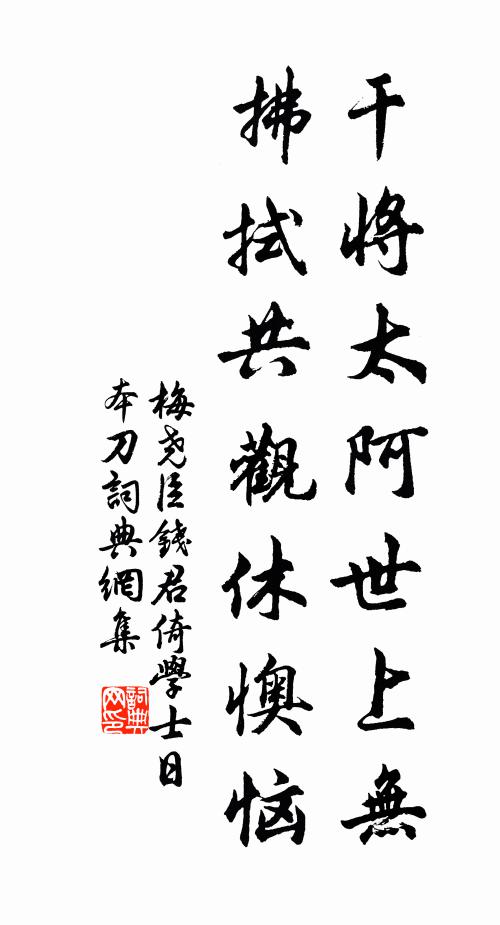 干將太阿世上無
拂拭共觀休懊恼
梅堯臣錢君倚學士日
本刀詞典網集
詞典网印